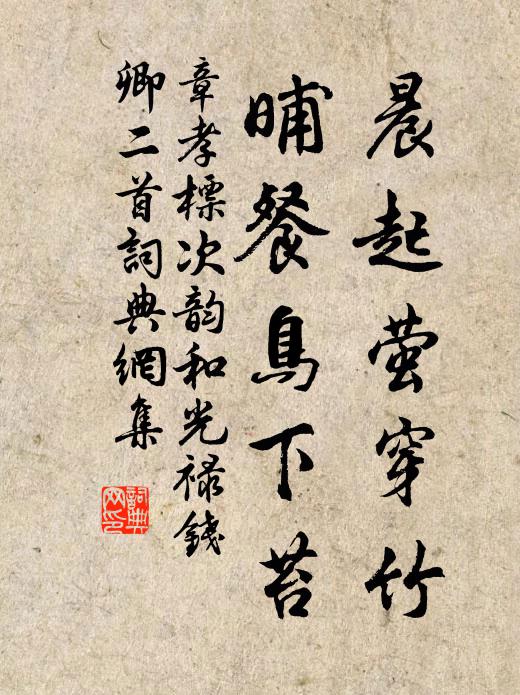 晨起萤穿竹
晡餐鳥下苔
章孝標次韵和光禄錢
卿二首詞典網集
詞典網印